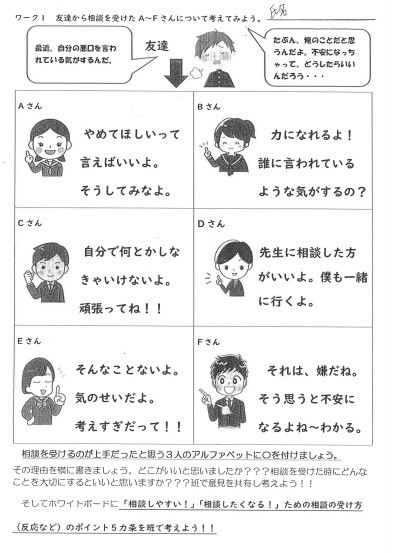 ワーク１　友達から相談を受けたＡ～Ｆさんについて考えてみよう。 氏名
最近、自分の悪口を言わ
れている気がするんだ。
友達
たぶん、俺のことだと思
うんだよ。不安になっち
ゃって。どうしたらいい
んだろう・・・
Ａさん
やめてほしいって
言えばいいよ。
そうしてみなよ。
Ｂさん
力になれるよ！
誰に言われている
ような気がするの？
Ｃさん
自分で何とかしな
きゃいけないよ。
頑張ってね！！
Ｄさん
先生に相談した方
がいいよ。僕も一緒
に行くよ。
Ｅさん
そんなことないよ。
気のせいだよ。
考えすぎだって！！
Ｆさん
それは、嫌だね。
そう思うと不安に
なるよね～わかる。
相談を受けるのが上手だったと思う３人のアルファベットに○を付けましょう。
その理由を横に書きましょう。どこがいいと思いましたか？？？相談を受けた時にどんな
ことを大切にするといいと思いますか？？？班で意見を共有し考えよう！！
そしてホワイトボードに「相談しやすい！」「相談したくなる！」ための相談の受け方
（反応など）のポイント５カ条を班で考えよう！！